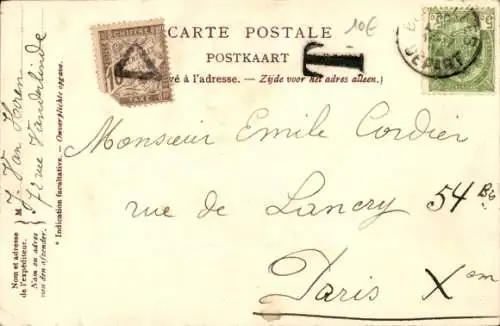 CARTE POSTALE
POSTKAART
é à l'adresse. — Zijde voor het adres alleen.)
10€
T
CHIFFRE
TAXE
DEPART
5
Monsieur Emile Cordier
rue de Lancry 54 Bis
Paris Xem
M. J. Van Haren
72 rue Vanderlinde
* Indication facultative. — Onverplichte opgave.
Nom et adresse
de l'expéditeur.
Nam en adres
van den afzender.